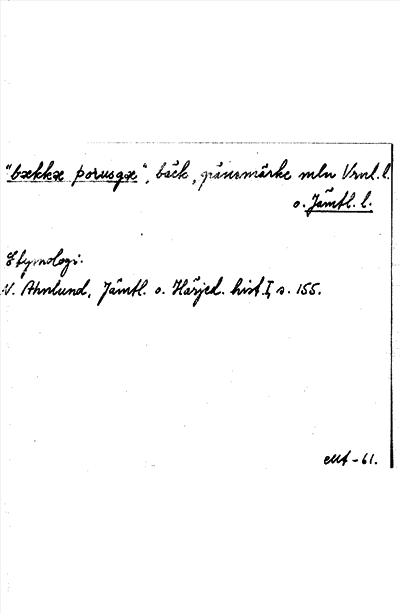 "bækkæ þorusgæ", bäck, gränsmärke mln Vrml. l.
o. Jämtl. l.
Etymologi:
N. Ahnlund, Jämtl. o. Härjed. hist. I, s. 155.
-61.